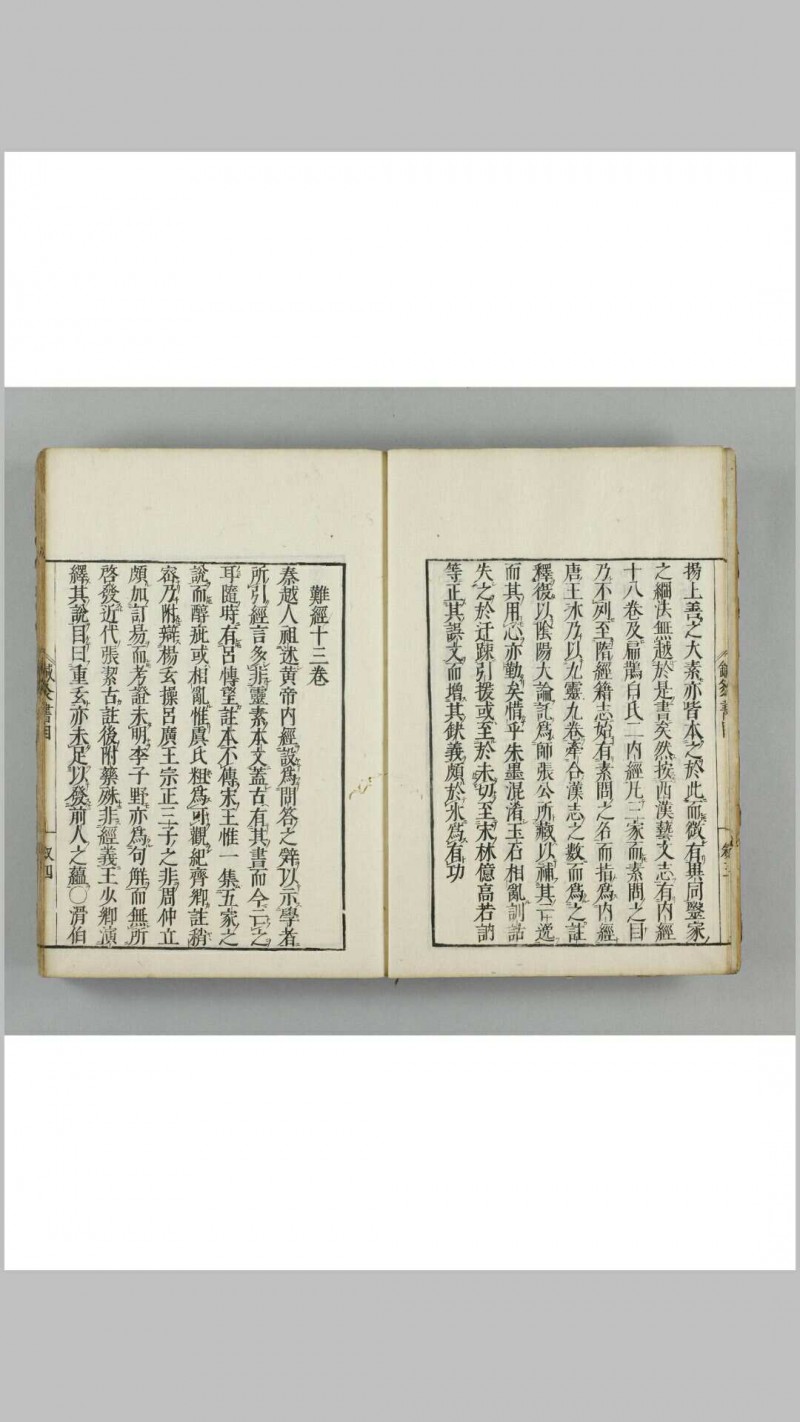 楊上善之太素亦皆本之於此而微有異同醫家
之綱法無越於是書矣然按西漢藝文志有内經
十八卷及扁鵲白氏二内經凡三家而素問之目
乃不列至隋經籍志始有素問之名而指爲内經
唐王冰乃以九靈九卷牽合漢志之數而爲之註
釋復以陰陽大論託爲師張公所藏以補其亡逸
而其用心亦勤矣惜乎朱墨混淆玉石相亂訓詁
失之於迂疎引援或至於未切至宋林億高若訥
等正其誤文而增其缺義頗於冰爲有功
難經十三卷
秦越人祖述黄帝内經設爲問答之辤以示學者
所引經言多非靈素本文蓋古有其書而今亡之
耳隨時有呂愽望註本不傳宋王惟一集五家之
說而醇疵或相亂惟虞氏粗爲可觀紀齊卿註稍
宻乃附辯楊玄操呂廣王宗正三子之非周仲立
頗加訂易而考證未明李子野亦爲句觧而無所
啓發近代張潔古註後附藥殊非經義王少卿演
繹其說目曰重玄亦未足以發前人之蘊○滑伯
鍼灸書目